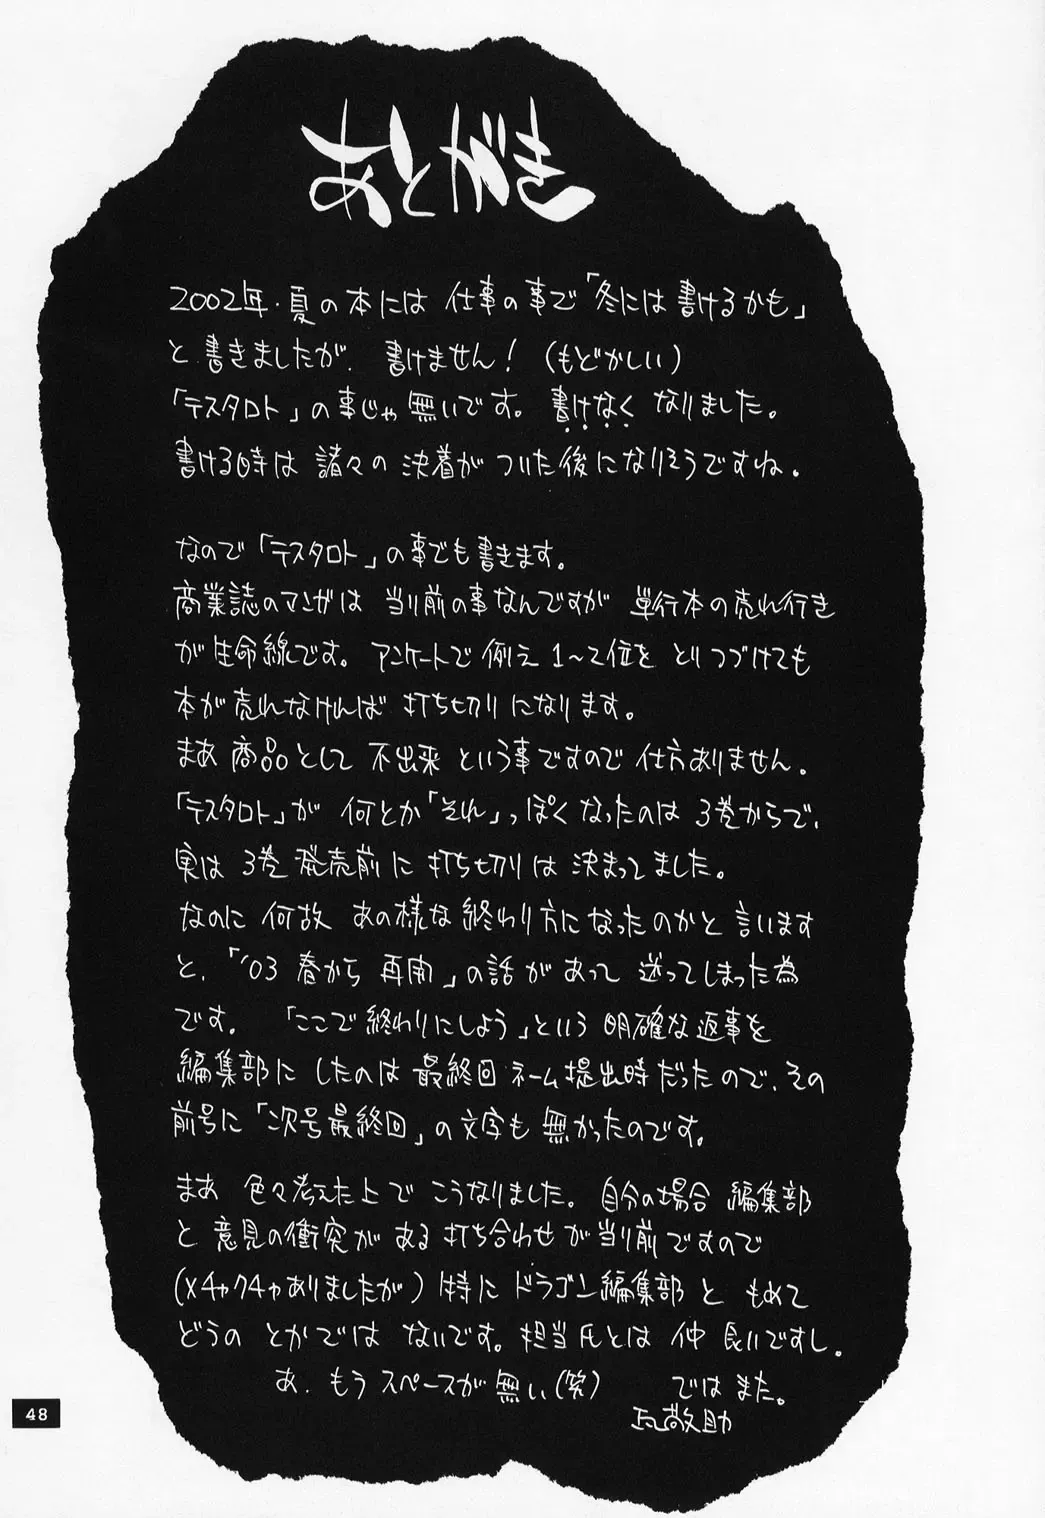 あとがき
2002年・夏の本には 仕事の事で「冬には書けるかも」
と書きましたが、書けません！（もどかしい）
「テスタロト」の事じゃ無いです。書けなくなりました。
書ける時は 諸々の決着がついた後になりそうですね。
なので「テスタロト」の事でも書きます。
商業誌のマンガは 当り前の事なんですが 単行本の売れ行き
が生命線です。アンケートで例え 1〜2位を とりつづけても
本が売れなければ 打ち切りになります。
まあ 商品として 不出来 という事ですので 仕方ありません。
「テスタロト」が 何とか「それ」っぽくなったのは 3巻からで、
実は 3巻 発売前に 打ち切りは 決まってました。
なのに 何故 あの様な終わり方になったのかと 言います
と、「'03 春から 再開」の話があって 送ってしまった為
です。「ここで終わりにしよう」という 明確な返事を
編集部に したのは 最終回 ネーム提出時だったので、その
前号に「次号最終回」の文字も 無かったのです。
まあ 色々考えた上で こうなりました。自分の場合 編集部
と 意見の衝突が ある 打ち合わせが当り前ですので
（メチャクチャありましたが）特に ドラゴン編集部と もめて
どうの とかでは ないです。担当氏とは 仲 良いですし。
あ、もう スペースが 無い（笑） では また。
敬助
48